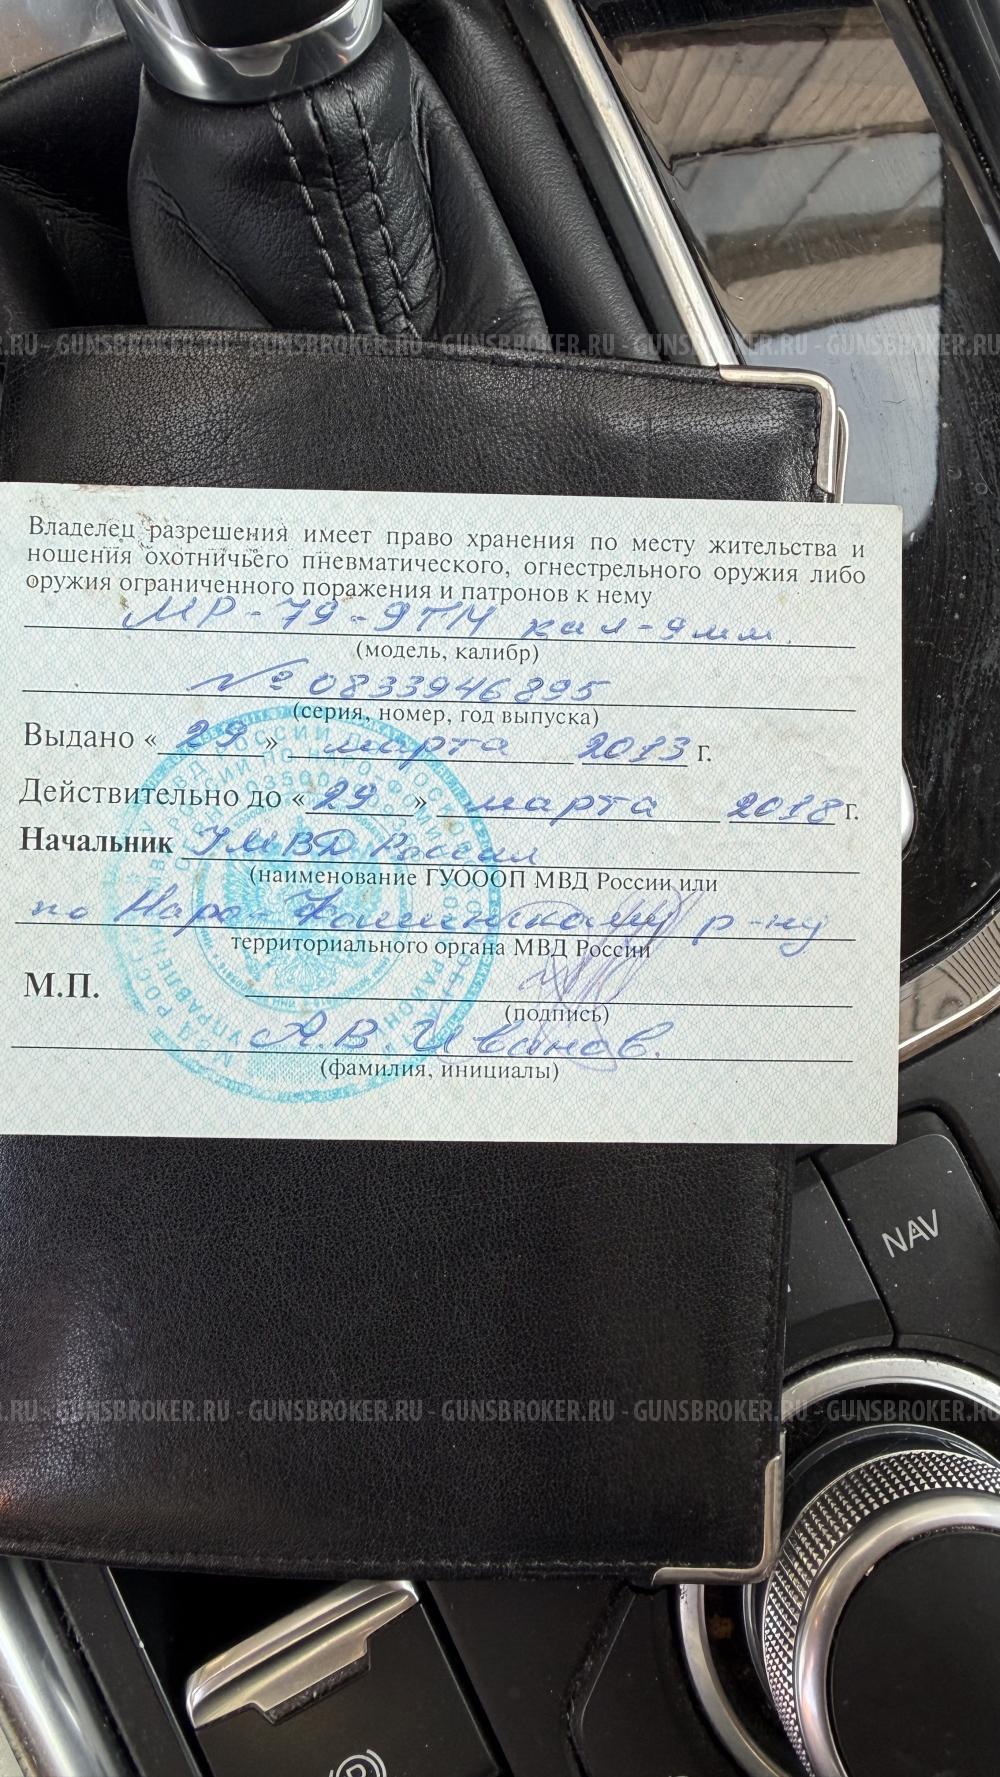 .RU - GUNSBROKER.RU - GUNSBROKER.RU - GUNSBROKER.RU - GUNSBROKER.RU - GUNSBROKER.RU
Владелец разрешения имеет право хранения по месту жительства и
ношения охотничьего пневматического, огнестрельного оружия либо
оружия ограниченного поражения и патронов к нему
МР-79-9ТМ кал-9мм.
(модель, калибр)
№ 0833946895
(серия, номер, год выпуска)
Выдано «29» марта 2013 г.
Действительно до «29» марта 2018 г.
Начальник УМВД России
(наименование ГУОООП МВД России или
по Наро-Фоминскому р-ну
территориального органа МВД России
М.П.
(подпись)
А.В. Иванов.
(фамилия, инициалы)
NAV
.RU - GUNSBROKER.RU - GUNSBROKER.RU - GUNSBROKER.RU - GUNSBROKER.RU - GUNSBROKER.RU